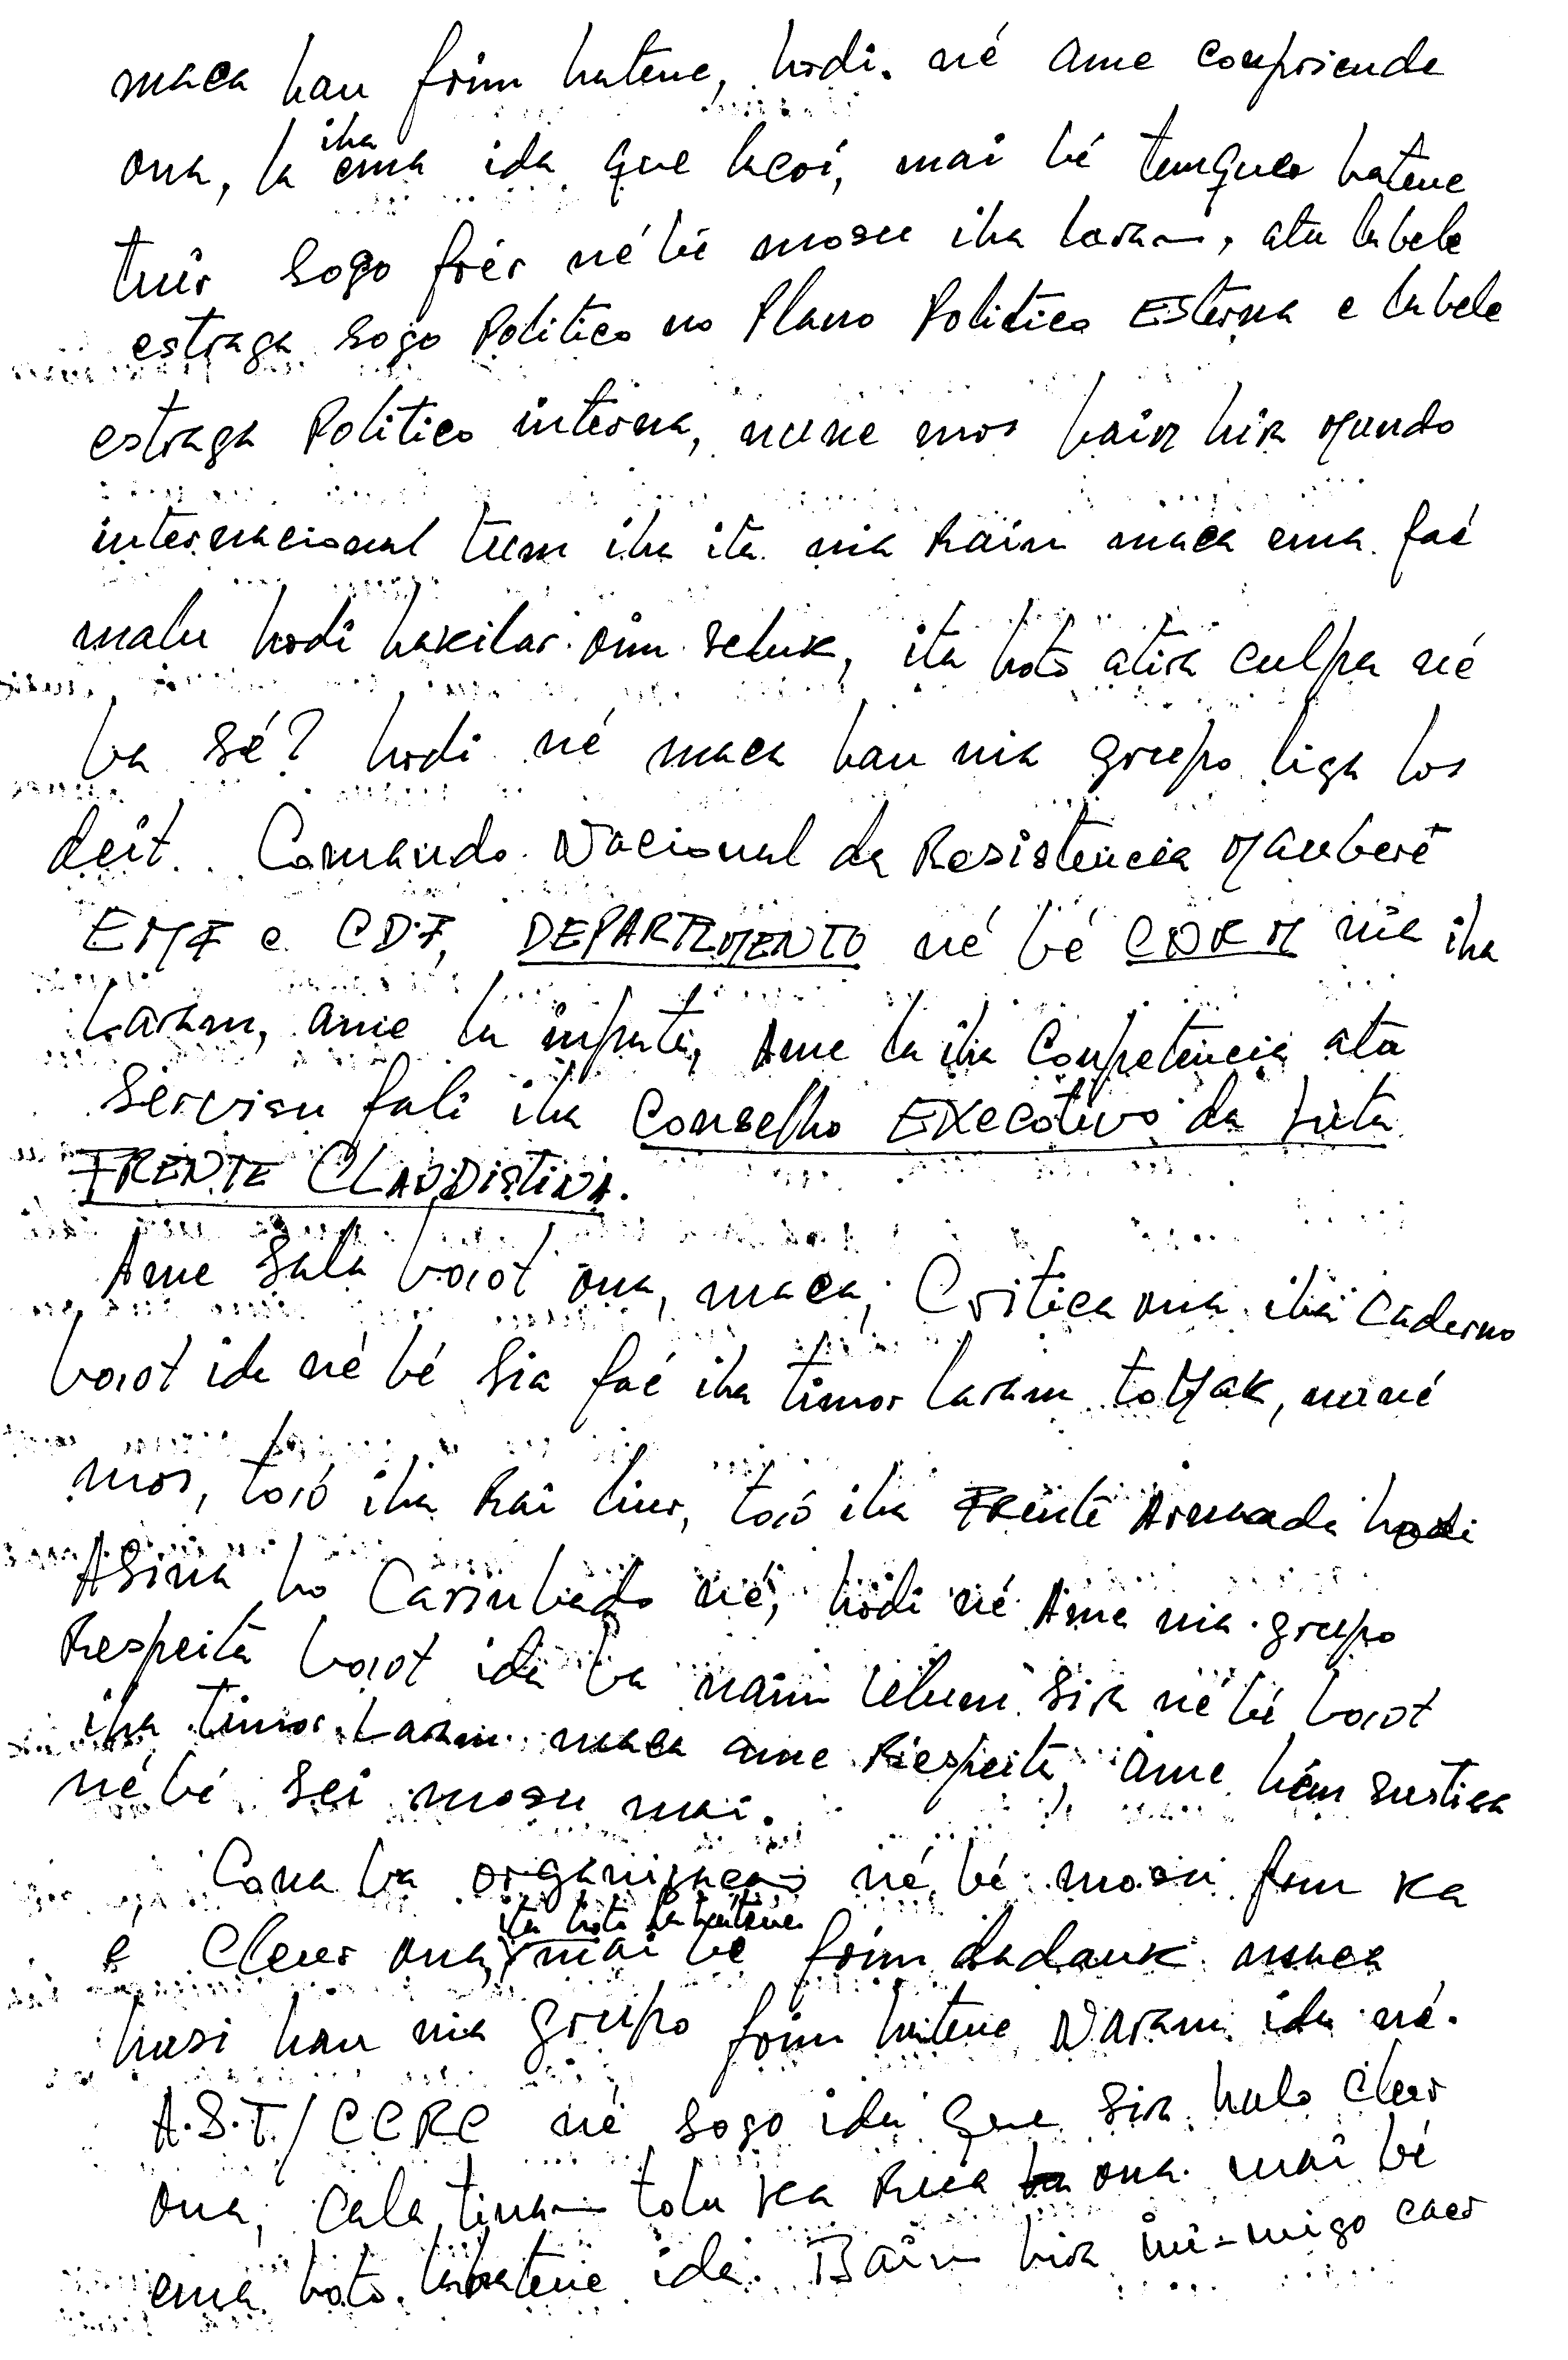 maca hau foin hatene, hodi. né ame compriende
ona, la iha ema ida que hcoí, mai bé tenquer hatene
tuir sogo frér né bé mosu iha laran, atu labele
estraga sogo Politico no Plano Politico Esterna e labele
estraga Politico interna, nune mos bain hira Mundo
internacional tum iha ita nia Rain maca ema faé
malu hodi hakilar oin seluk, ita hoto atira culpa né
ba sé? hodi né maca hau nia grupo liga los
deit.. Comando Nacional da Resistencia Maubere
EMF e CDF, DEPARTMENTO né bé CNRM nia iha
Laran, ame la inputa, Ame la iha Competencia atu
Servisu fali iha Conselho EXecotivo da Luta
FRENTE CLANDISTINA.
Ame Sala boiot ona, maca, Critica ona iha Caderno
boiot ida né bé Sia faé iha timor laran toMak, nuné
mos, toió iha Rai liur, toió iha Frente Armada hodi
ASina ho Carimbado né, hodi né Ame nia grupo
Respeita boiot ida ba nain ulum Sira né bé boiot
iha timor Laran maca ame Riespeita, ame hein sustica
né bé sei mosu mai.
Cona ba organizacao né bé mosu foin ka
é Cleur ona, ita hoto la hatene mai bé foin dadauk maca
husi hau nia grupo foin hatene Naran ida né.
A.S.T./CCRC né sogo ida que sira halo cleur
ona, cala tinan tolu ka Rua ona mai bé
ema hoto labatene ida. Bain hira ini-migo caer